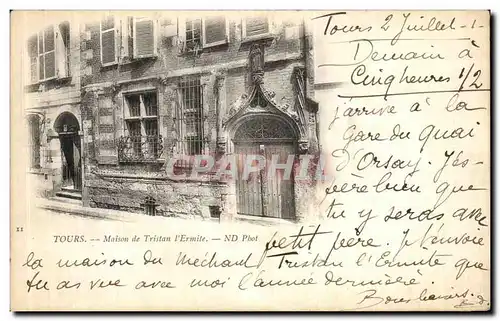 Tours 2 Juillet - 1 -
Demain à
Cinq heures 1/2
j'arrive à la
Gare du Quai
d'Orsay. J'és-
père bien que
tu y seras avec
petit père. J'envoie
la maison du Méchant Tristan l'Ermite que
tu as vue avec moi l'année dernière.
Bons baisers.
11
TOURS. — Maison de Tristan l'Ermite. — ND Phot
CARTE POSTALE